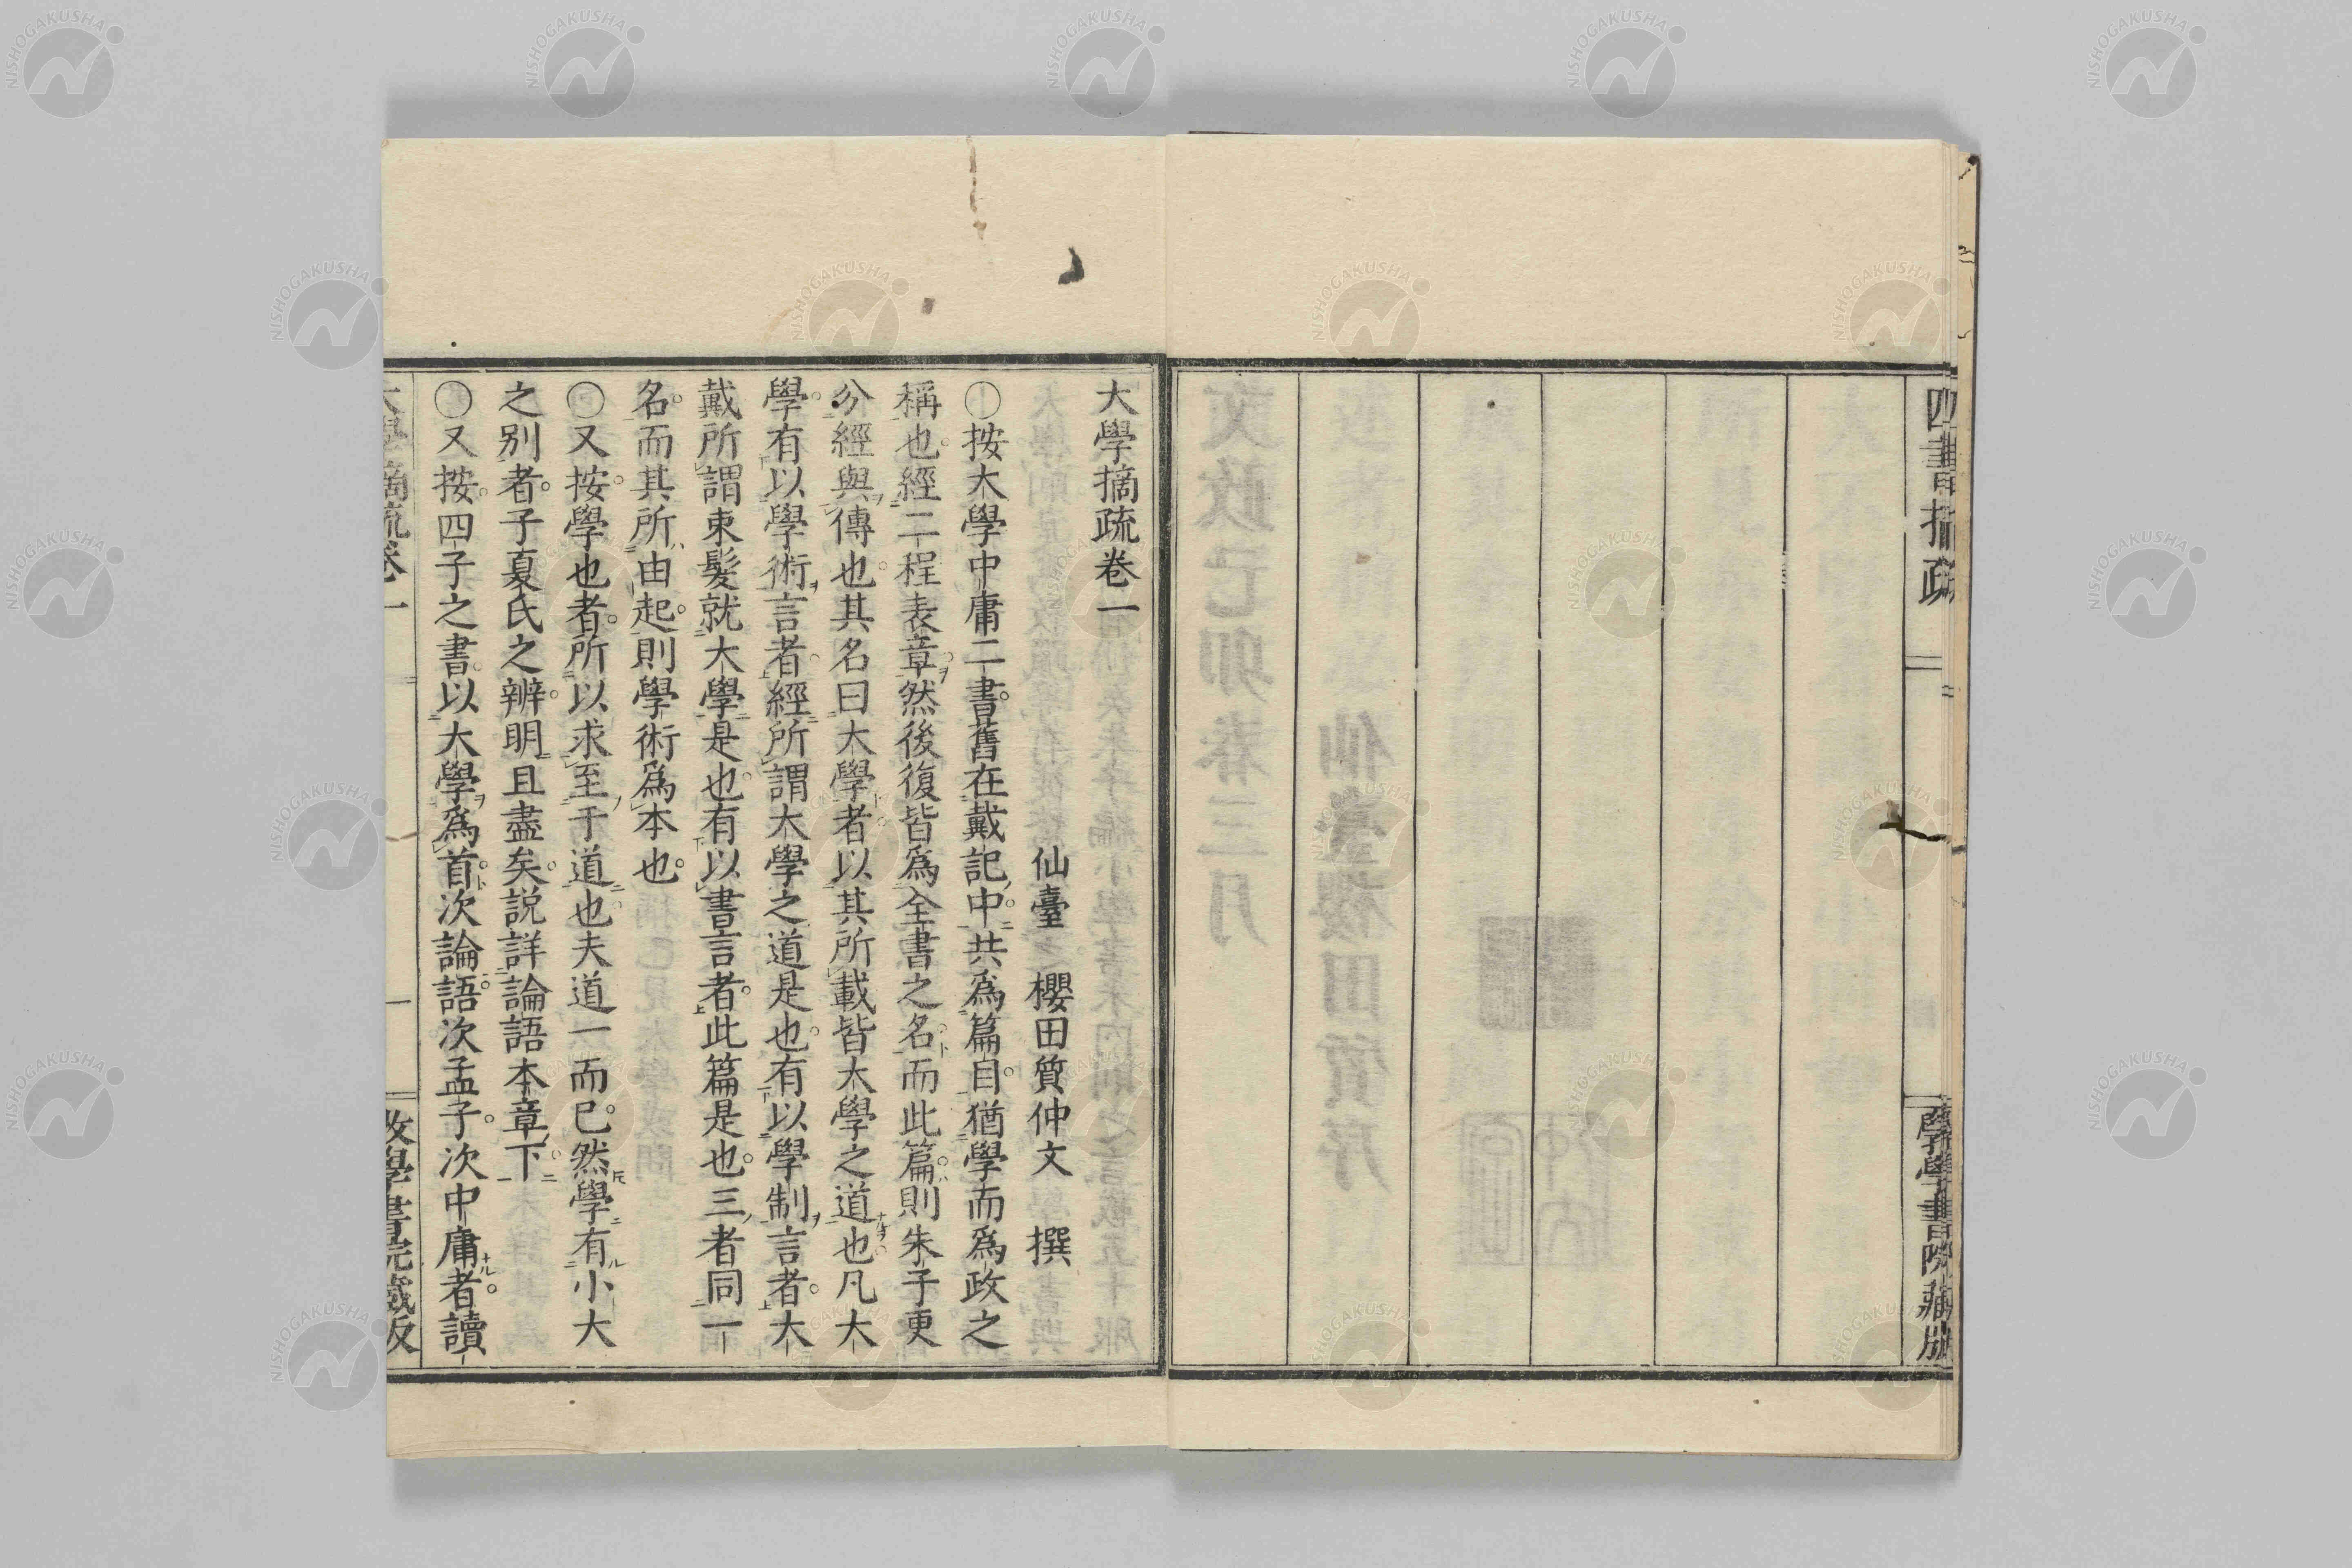 四書摘疏
學書院藏版
大學摘疏卷一
仙臺 櫻田質仲文 撰
○按大學中庸二書舊在戴記中共爲篇目猶學而爲政之
稱也經二程表章然後復皆爲全書之名而此篇則朱子更
分經與傳也其名曰大學者以其所載皆大學之道也凡大
學有以學術言者經所謂大學之道是也有以學制言者大
戴所謂束髮就大學是也有以書言者此篇是也三者同一
名而其所由起則學術爲本也
○又按學也者所以求至于道也夫道一而已然學有小大
之別者子夏氏之辨明且盡矣說詳論語本章下
○又按四子之書以大學爲首次論語次孟子次中庸者讀
大學摘疏卷一
一
學書院藏版